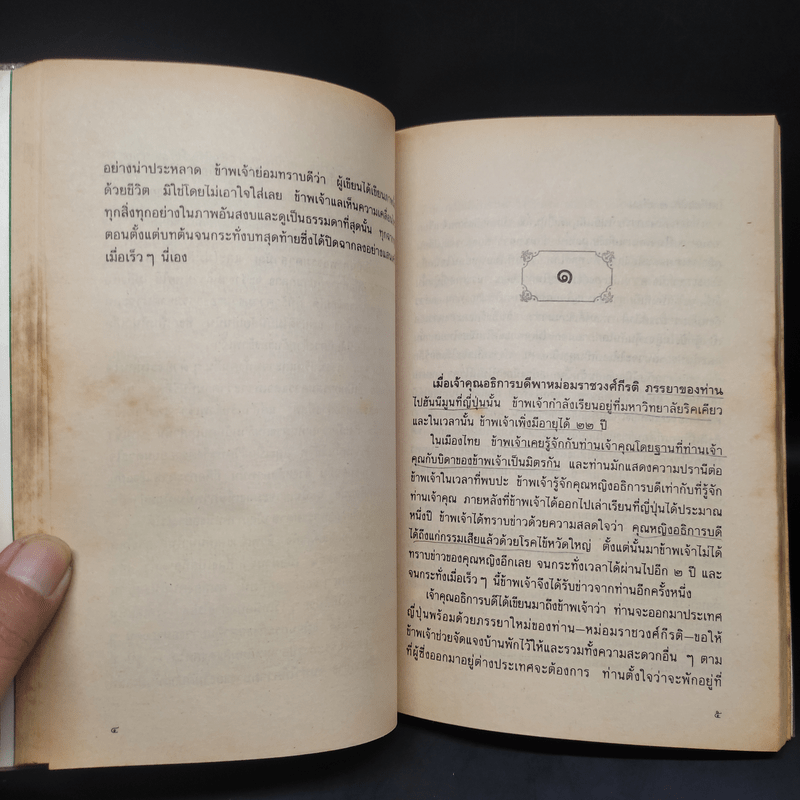 อย่างน่าประหลาด ข้าพเจ้าย่อมทราบดีว่า ผู้เขียนได้เขียน
ด้วยชีวิต มิใช่โดยไม่เอาใจใส่เลย ข้าพเจ้าแลเห็นความเคลื่อน
ทุกสิ่งทุกอย่างในภาพอันสงบและดูเป็นธรรมดาที่สุดนั้น
ตอนตั้งแต่บทต้นจนกระทั่งบทสุดท้ายซึ่งได้ปิดฉากลงอย่าง
เมื่อเร็วๆ นี่เอง
๔
๑
เมื่อเจ้าคุณอธิการบดีพาหม่อมราชวงศ์กีรติ ภรรยาของท่าน
ไปฮันนีมูนที่ญี่ปุ่นนั้น ข้าพเจ้ากำลังเรียนอยู่ที่มหาวิทยาลัยริคเคียว
และในเวลานั้น ข้าพเจ้าเพิ่งมีอายุได้ ๒๒ ปี
ในเมืองไทย ข้าพเจ้าเคยรู้จักกับท่านเจ้าคุณโดยฐานที่ท่านเจ้า
คุณกับบิดาของข้าพเจ้าเป็นมิตรกัน และท่านมักแสดงความปรานีต่อ
ข้าพเจ้าในเวลาที่พบปะ ข้าพเจ้ารู้จักคุณหญิงอธิการบดีเท่ากับที่รู้จัก
ท่านเจ้าคุณ ภายหลังที่ข้าพเจ้าได้ออกไปเล่าเรียนที่ญี่ปุ่นได้ประมาณ
หนึ่งปี ข้าพเจ้าได้ทราบข่าวด้วยความสลดใจว่า คุณหญิงอธิการบดี
ได้ถึงแก่กรรมเสียแล้วด้วยโรคไข้หวัดใหญ่ ตั้งแต่นั้นมาข้าพเจ้าไม่ได้
ทราบข่าวของคุณหญิงอีกเลย จนกระทั่งเวลาได้ผ่านไปอีก ๒ ปี และ
จนกระทั่งเมื่อเร็วๆ นี้ข้าพเจ้าจึงได้รับข่าวจากท่านอีกครั้งหนึ่ง
เจ้าคุณอธิการบดีได้เขียนมาถึงข้าพเจ้าว่า ท่านจะออกมาประเทศ
ญี่ปุ่นพร้อมด้วยภรรยาใหม่ของท่าน—หม่อมราชวงศ์กีรติ—ขอให้
ข้าพเจ้าช่วยจัดแจงบ้านพักไว้ให้และรวมทั้งความสะดวกอื่น ๆ ตาม
ที่ผู้ซึ่งออกมาอยู่ต่างประเทศจะต้องการ ท่านตั้งใจว่าจะพักอยู่ที่
๕